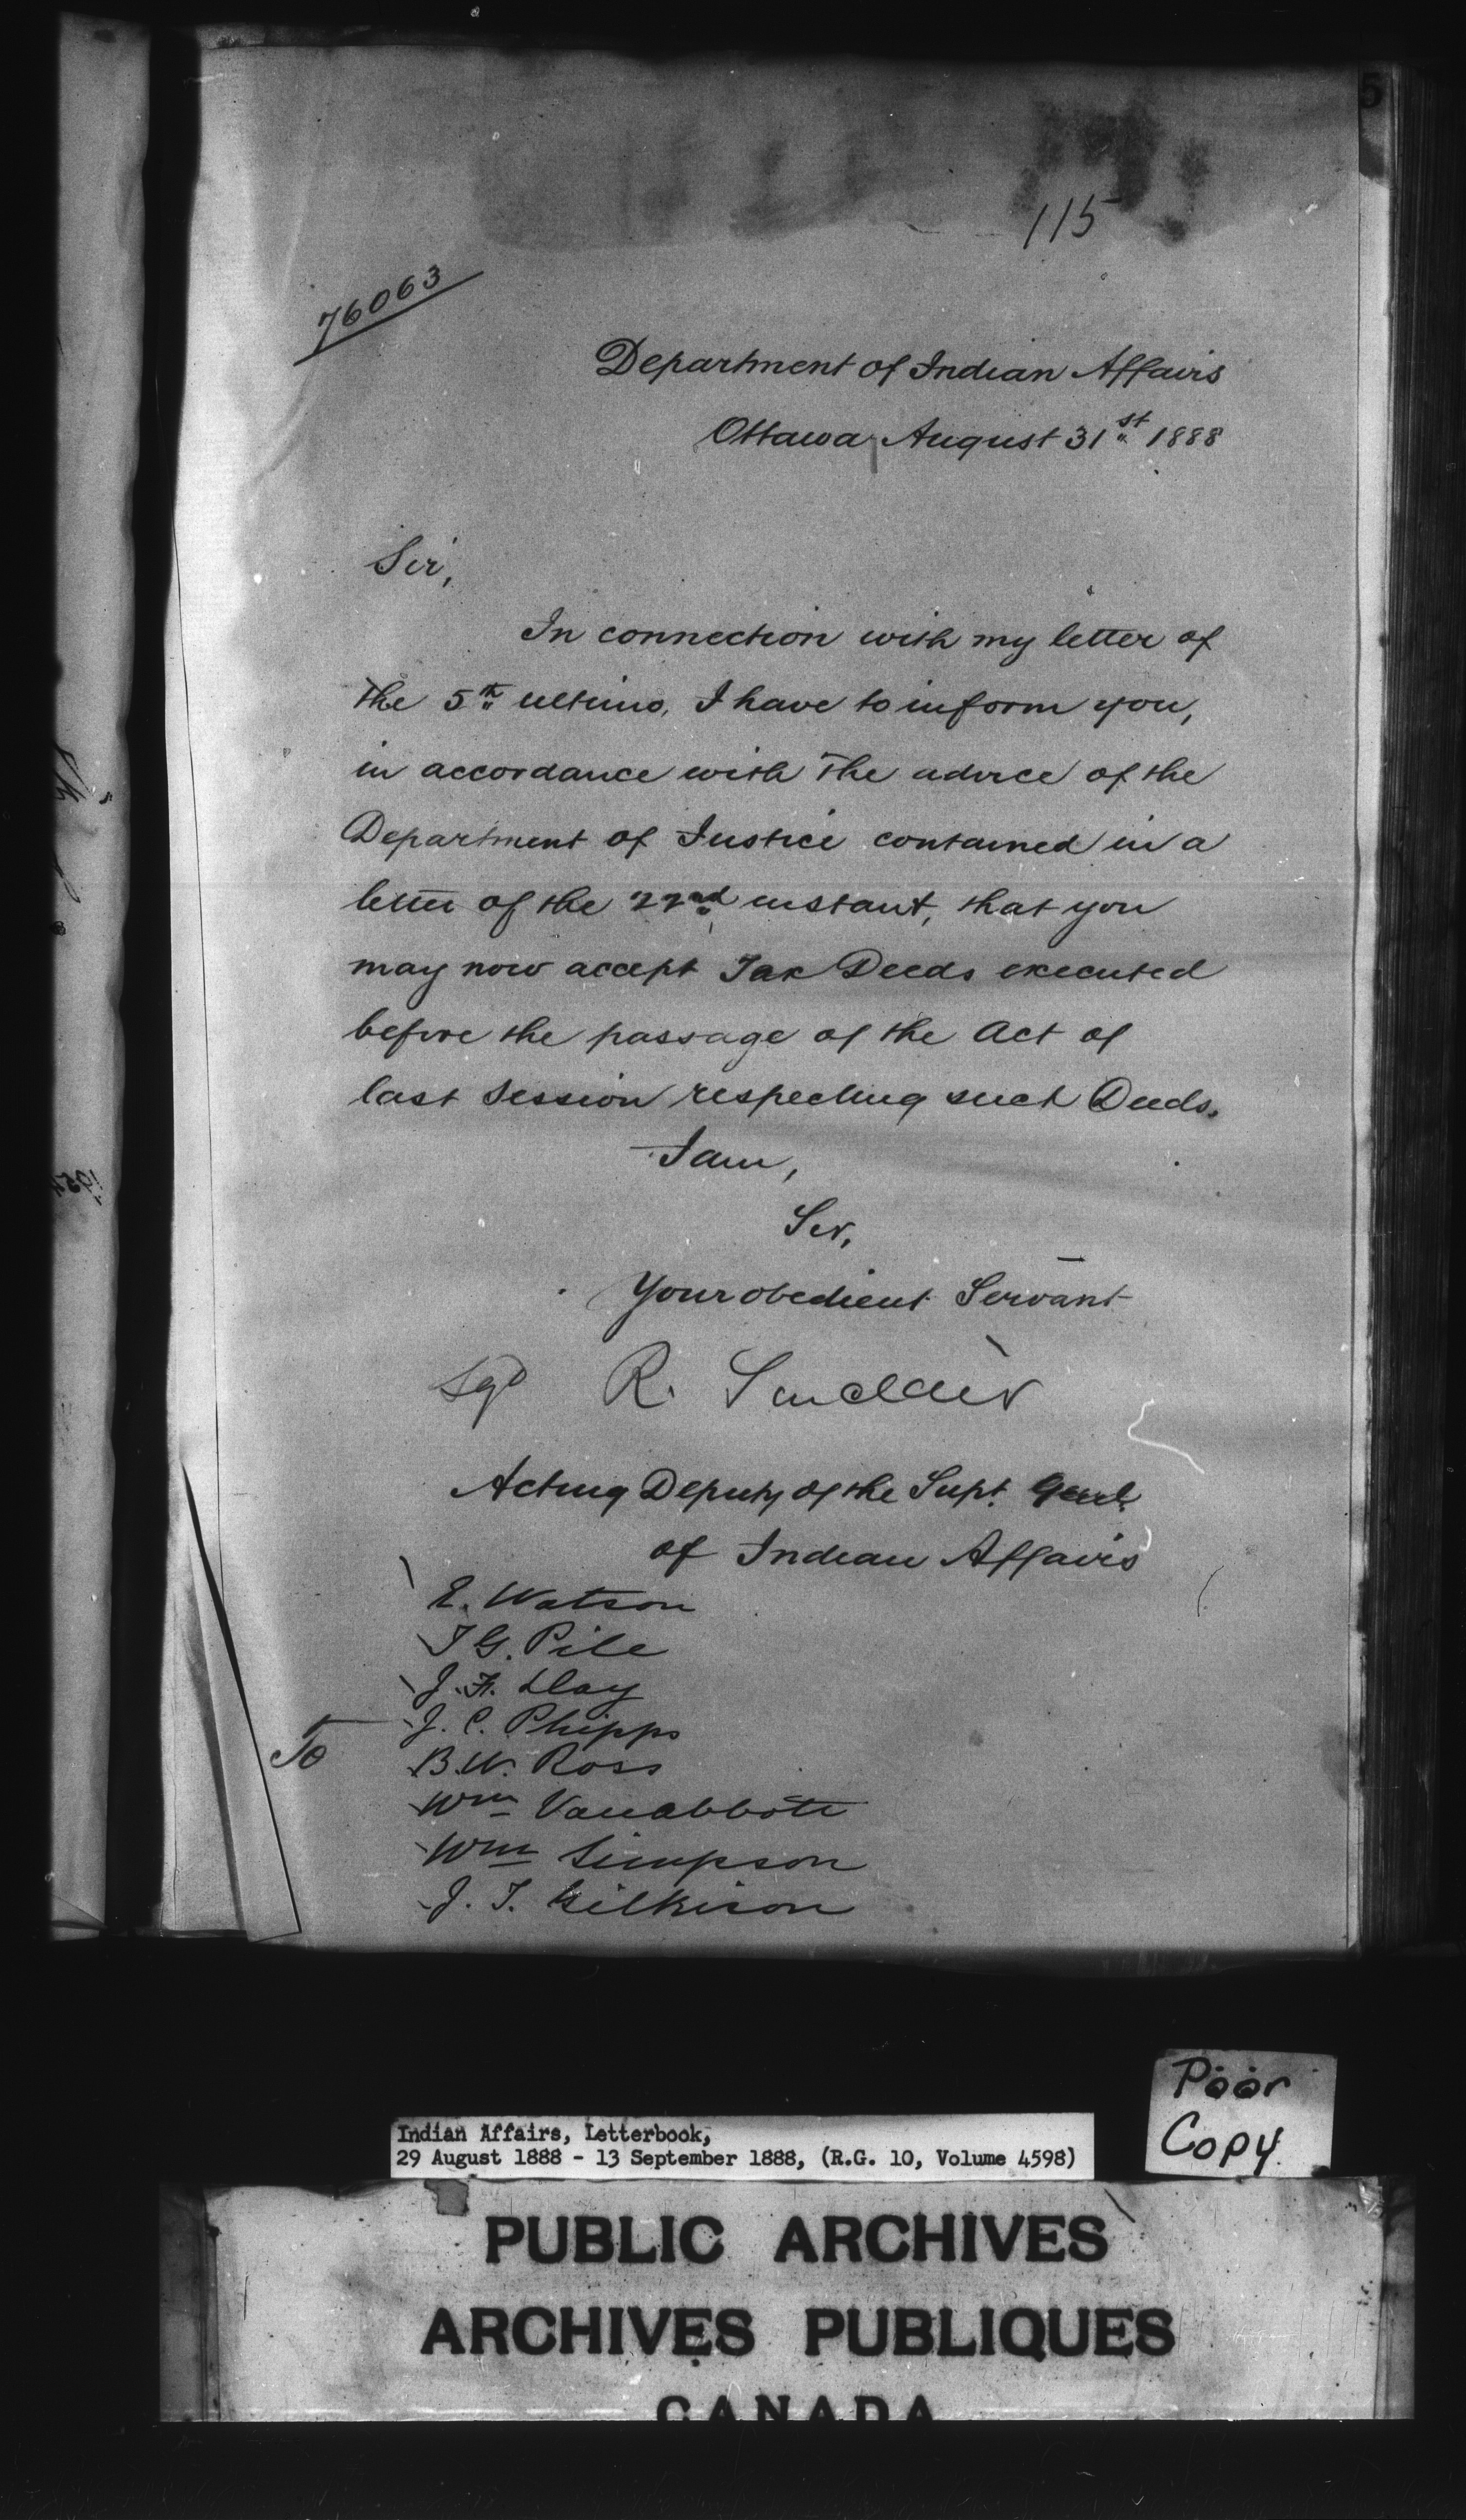 115
76063
Department of Indian Affairs
Ottawa, August 31st 1888
Sir,
In connection with my letter of
the 5th ultimo, I have to inform you,
in accordance with the advice of the
Department of Justice contained in a
letter of the 22nd instant, that you
may now accept Tax Deeds executed
before the passage of the Act of
last Session respecting such Deeds.
I am,
Sir,
Your obedient Servant
Sgd R. Sinclair
Acting Deputy of the Supt. Genl.
of Indian Affairs
E. Watson
T G. Pile
J. F. Day
To J. C. Phipps
B. W. Ross
Wm Vanabbott
Wm Simpson
J. T. Gilkison
Poor
Copy
Indian Affairs, Letterbook,
29 August 1888 - 13 September 1888, (R.G. 10, Volume 4598)
PUBLIC ARCHIVES
ARCHIVES PUBLIQUES
CANADA